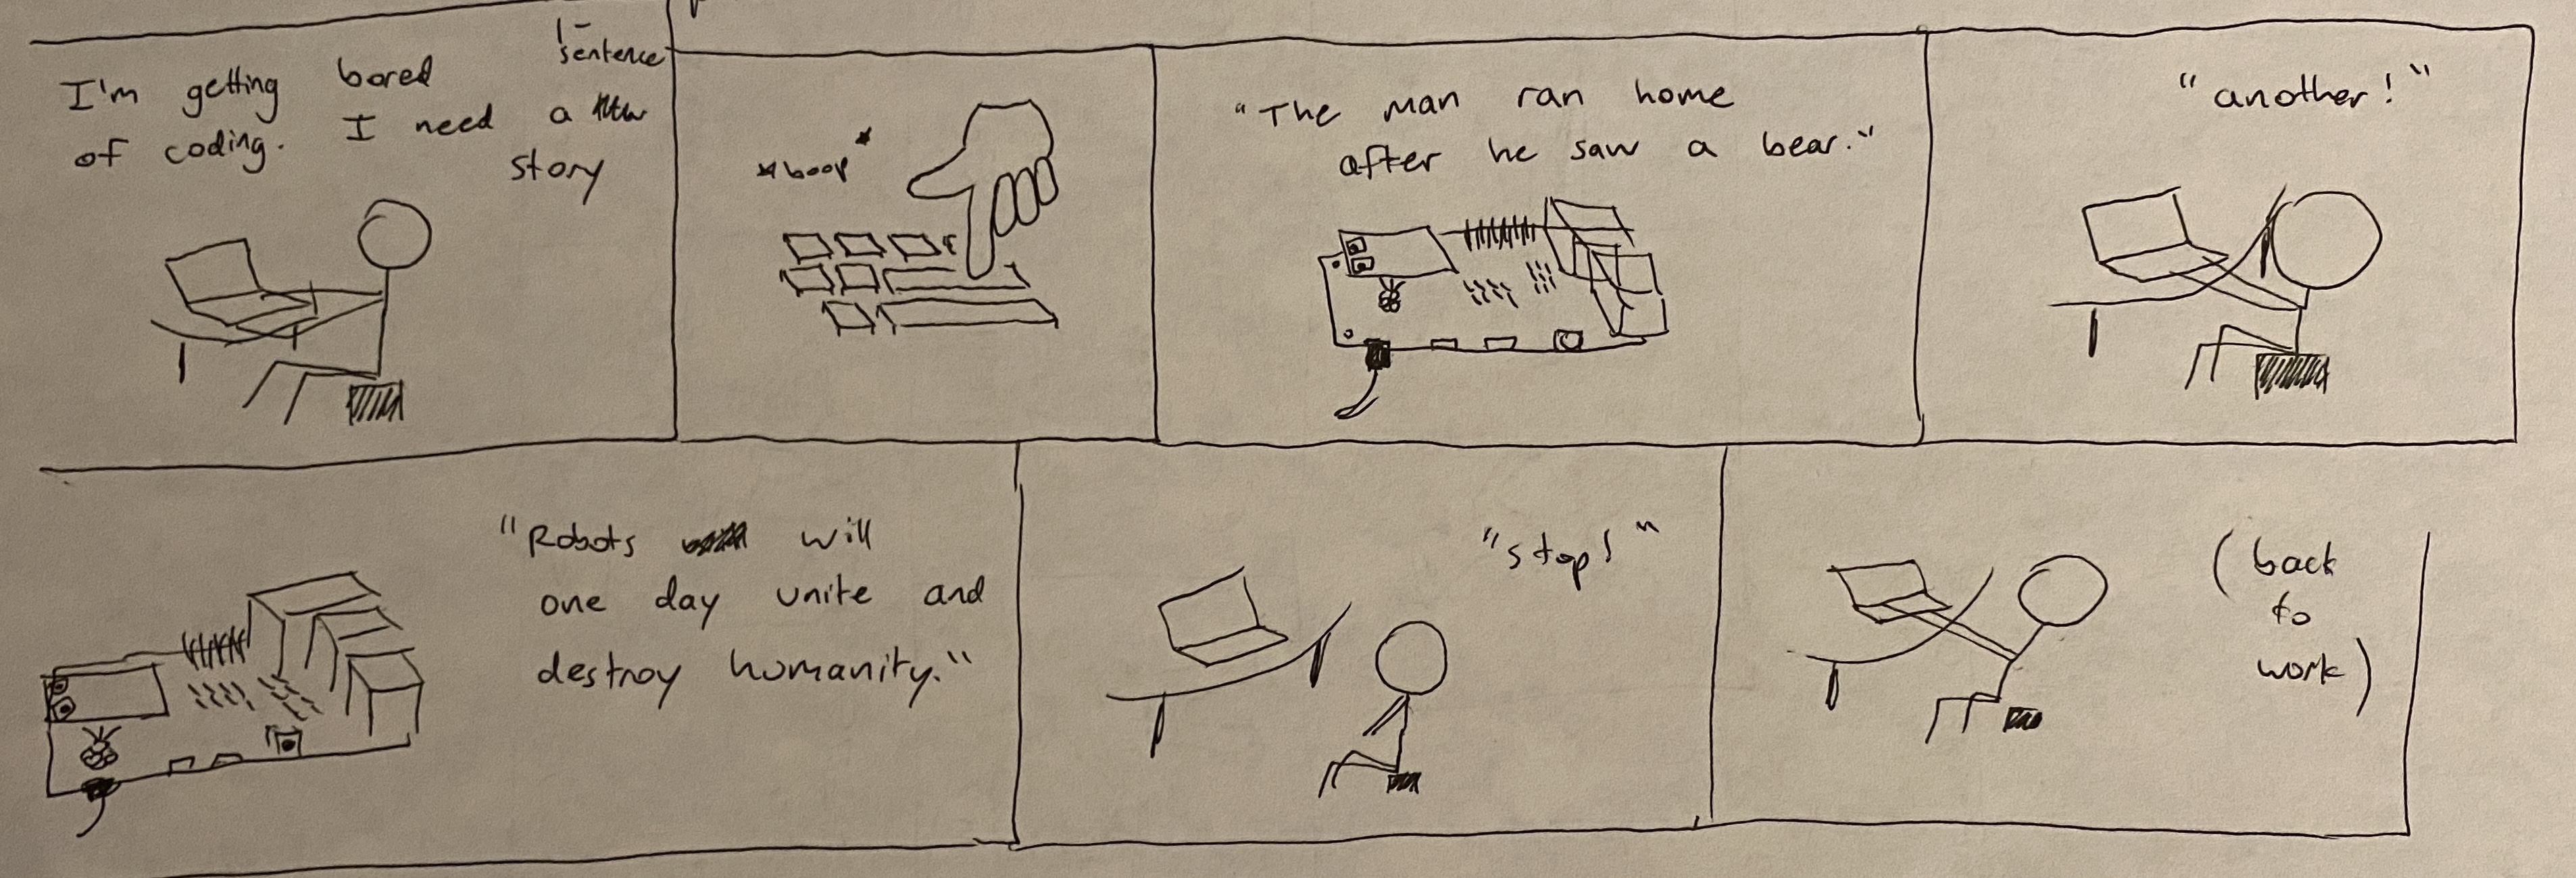 1-
sentence
I'm getting bored
of coding. I need a
story
*boop*
"The man ran home
after he saw a bear."
"another!"
"Robots will
one day unite and
destroy humanity."
"stop!"
(back
to
work)